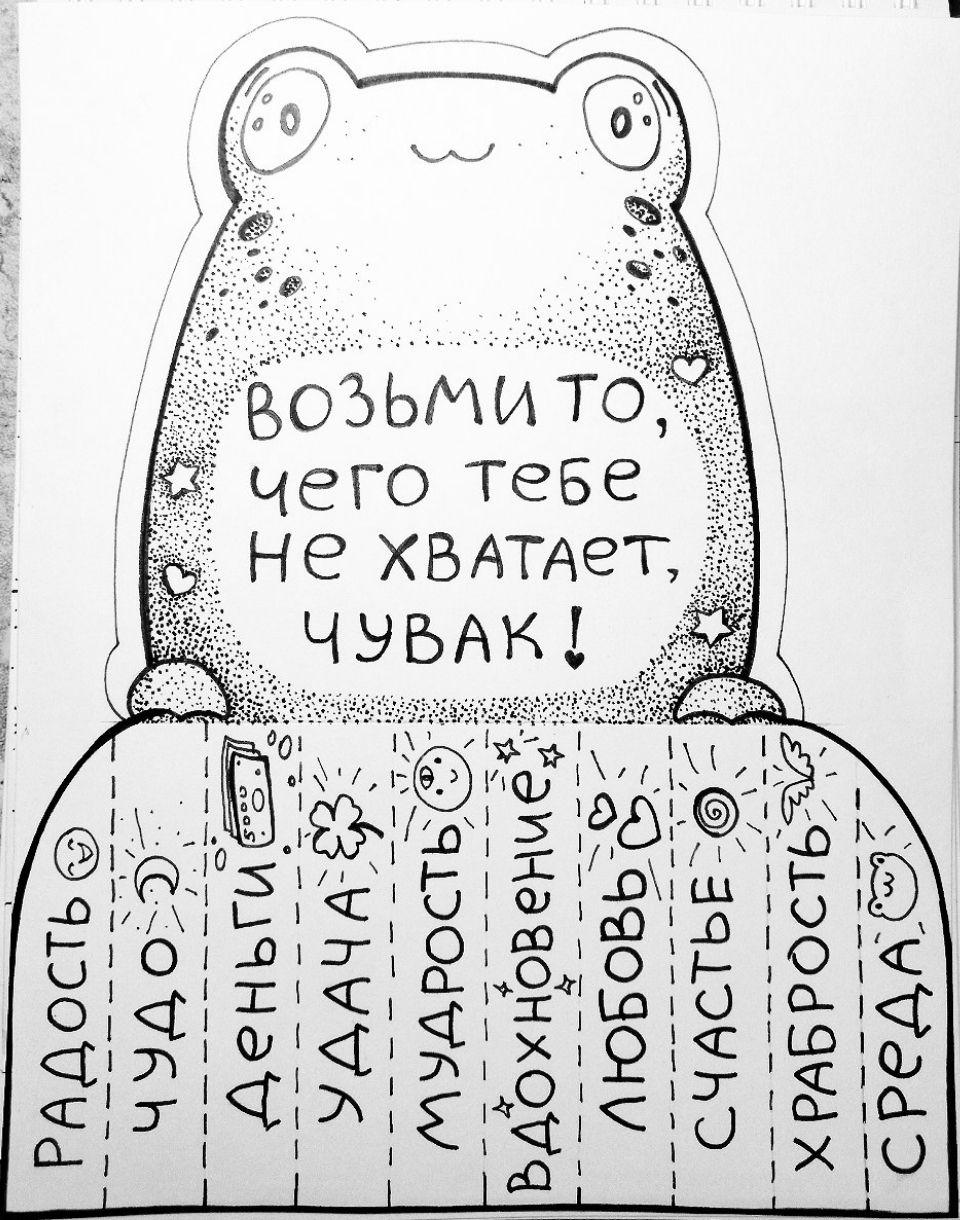 ВОЗЬМИ ТО,
чего тебе
не хватает,
чувак!
РАДОСТЬ
ЧУДО
Деньги
5000
УДАЧА
МУДРОСТЬ
ВДОХНОВЕНИЕ
ЛЮБОВЬ
СЧАСТЬЕ
ХРАБРОСТЬ
СРеДА